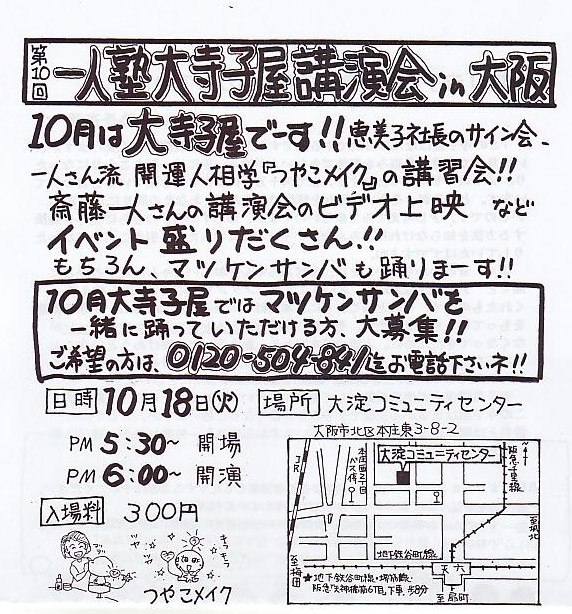 第10回 一人塾大寺子屋講演会in大阪
10月は大寺子屋でーす!!恵美子社長のサイン会、
一人さん流 開運人相学『つやこメイク』の講習会!!
斎藤一人さんの講演会のビデオ上映 など
イベント盛りだくさん!!
もちろん、マツケンサンバも踊りまーす!!
10月大寺子屋ではマツケンサンバを
一緒に踊っていただける方、大募集!!
ご希望の方は、0120-504-841迄お電話下さいネ!!
日時 10月18日(火) 場所 大淀コミュニティセンター
大阪市北区本庄東3-8-2
PM 5:30〜 開場
PM 6:00〜 開演
入場料 300円
つやこメイク
JR
大淀コミュニティセンター
阪急千里線
地下鉄谷町線
天六
至梅田
至扇町
★地下鉄谷町線・堺筋線・
阪急「天神橋筋6丁目」下車 歩8分